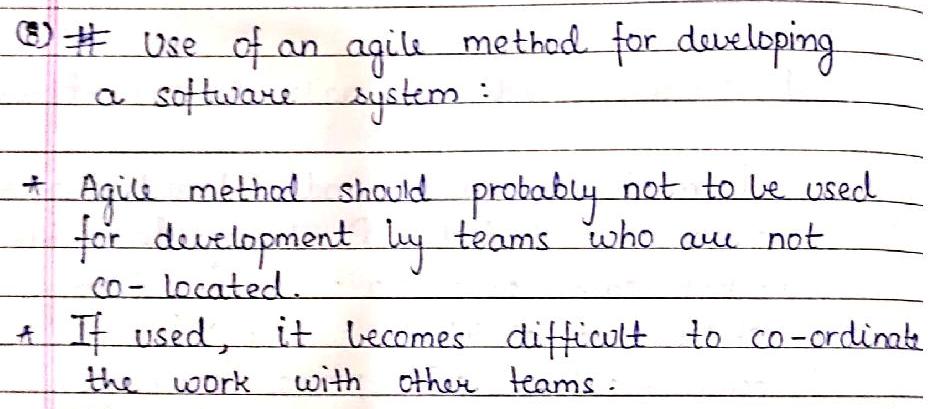 (8) # Use of an agile method for developing
a software system :
* Agile method should probably not to be used
for development by teams who are not
co-located.
* If used, it becomes difficult to co-ordinate
the work with other teams.